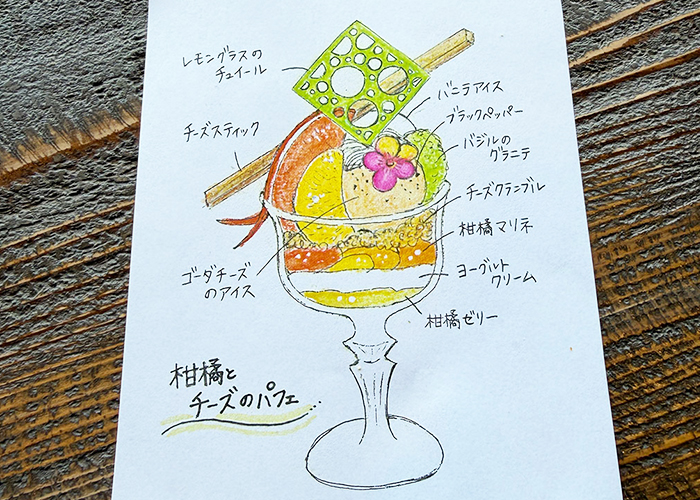 レモングラスの
チュイール
チーズスティック
バニラアイス
ブラックペッパー
バジルの
グラニテ
チーズクランブル
柑橘マリネ
ヨーグルト
クリーム
ゴーダチーズ
のアイス
柑橘ゼリー
柑橘と
チーズのパフェ